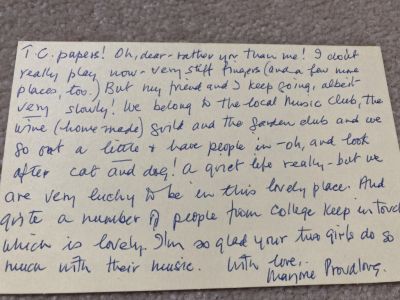 T.C. papers! Oh, dear - rather you than me! I don't
really play now - very stiff fingers (and a few more
places, too.) But my friend and I keep going, albeit
very slowly! We belong to the local Music Club, the
wine (home made) guild and the garden club and we
go out a little & have people in - oh, and look
after cat and dog! A quiet life really - but we
are very lucky to be in this lovely place. And
quite a number of people from college keep in touch
which is lovely. I'm so glad your two girls do so
much with their music. With love,
Marjorie